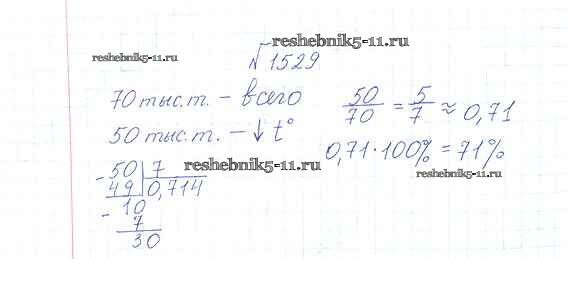 reshebnik5-11.ru
reshebnik5-11.ru
№1529
70 тыс.т. – всего
50/70 = 5/7 ≈ 0,71
50 тыс.т. – ↓ t°
0,71 · 100% = 71%
reshebnik5-11.ru
reshebnik5-11.ru
- 50 | 7
49 | 0,714
- 10
7
30